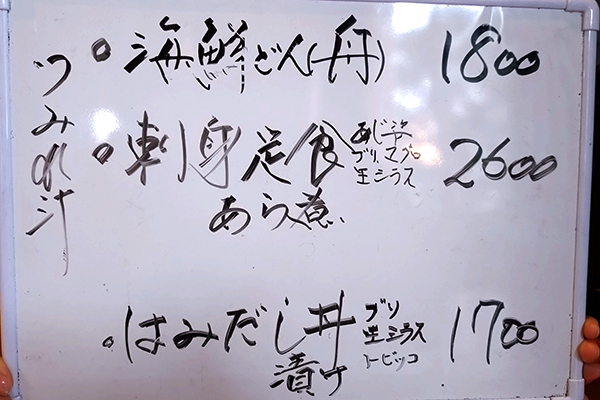 つみれ汁
海鮮どん(丼) 1800
刺身定食 あじ
ブリ、マグロ
生シラス 2600
あら煮
はみだし丼 ブリ
生シラス
トビッコ 1700
漬け